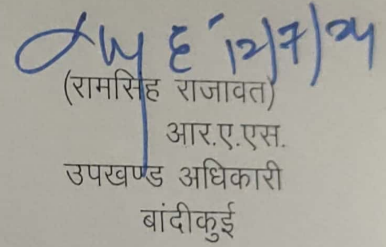 12/7/24
(रामसिंह राजावत)
आर.ए.एस.
उपखण्ड अधिकारी
बांदीकुई